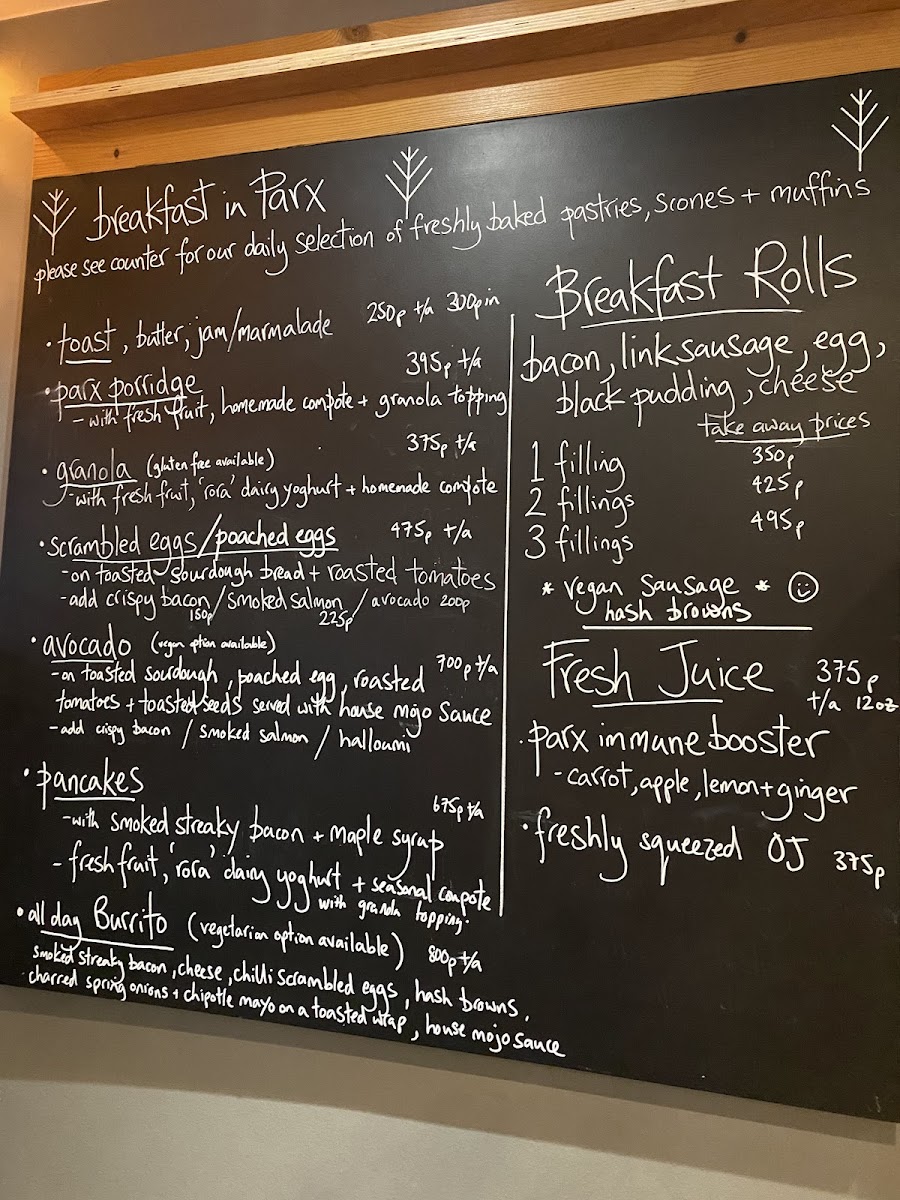 breakfast in Parx
please see counter for our daily selection of freshly baked pastries, scones + muffins
• toast, butter, jam/marmalade 250p t/a 300p in
• parx porridge 395p t/a
- with fresh fruit, homemade compote + granola topping
• granola (gluten free available) 375p t/a
- with fresh fruit, 'rora' dairy yoghurt + homemade compote
• scrambled eggs/poached eggs 475p t/a
- on toasted sourdough bread + roasted tomatoes
- add crispy bacon / smoked salmon / avocado 200p
150p 225p
• avocado (vegan option available) 700p t/a
- on toasted sourdough, poached egg, roasted
tomatoes + toasted seeds served with house mojo sauce
- add crispy bacon / smoked salmon / halloumi
• pancakes 675p t/a
- with smoked streaky bacon + maple syrup
- fresh fruit, 'rora' dairy yoghurt + seasonal compote
with granola topping.
• all day Burrito (vegetarian option available) 800p t/a
smoked streaky bacon, cheese, chilli scrambled eggs, hash browns,
charred spring onions + chipotle mayo on a toasted wrap, house mojo sauce
Breakfast Rolls
bacon, link sausage, egg,
black pudding, cheese
take away prices
1 filling 350p
2 fillings 425p
3 fillings 495p
* vegan sausage * ☺
hash browns
Fresh Juice 375p
t/a 12oz
• parx immune booster
- carrot, apple, lemon + ginger
• freshly squeezed OJ 375p